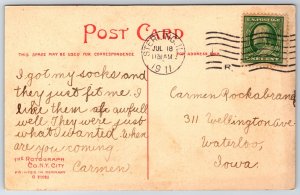 POST CARD
THIS SPACE MAY BE USED FOR CORRESPONDENCE.
JUL 18
1911
R.
I got my socks and
they just fit me I
like them awfull
well They were just
what I wanted. When
are you coming.
Carmen
Carmen Rockabrand
311 Wellington Ave
Waterloo,
Iowa.
THE ROTOGRAPH
CO. N.Y. CITY
PRINTED IN GERMANY